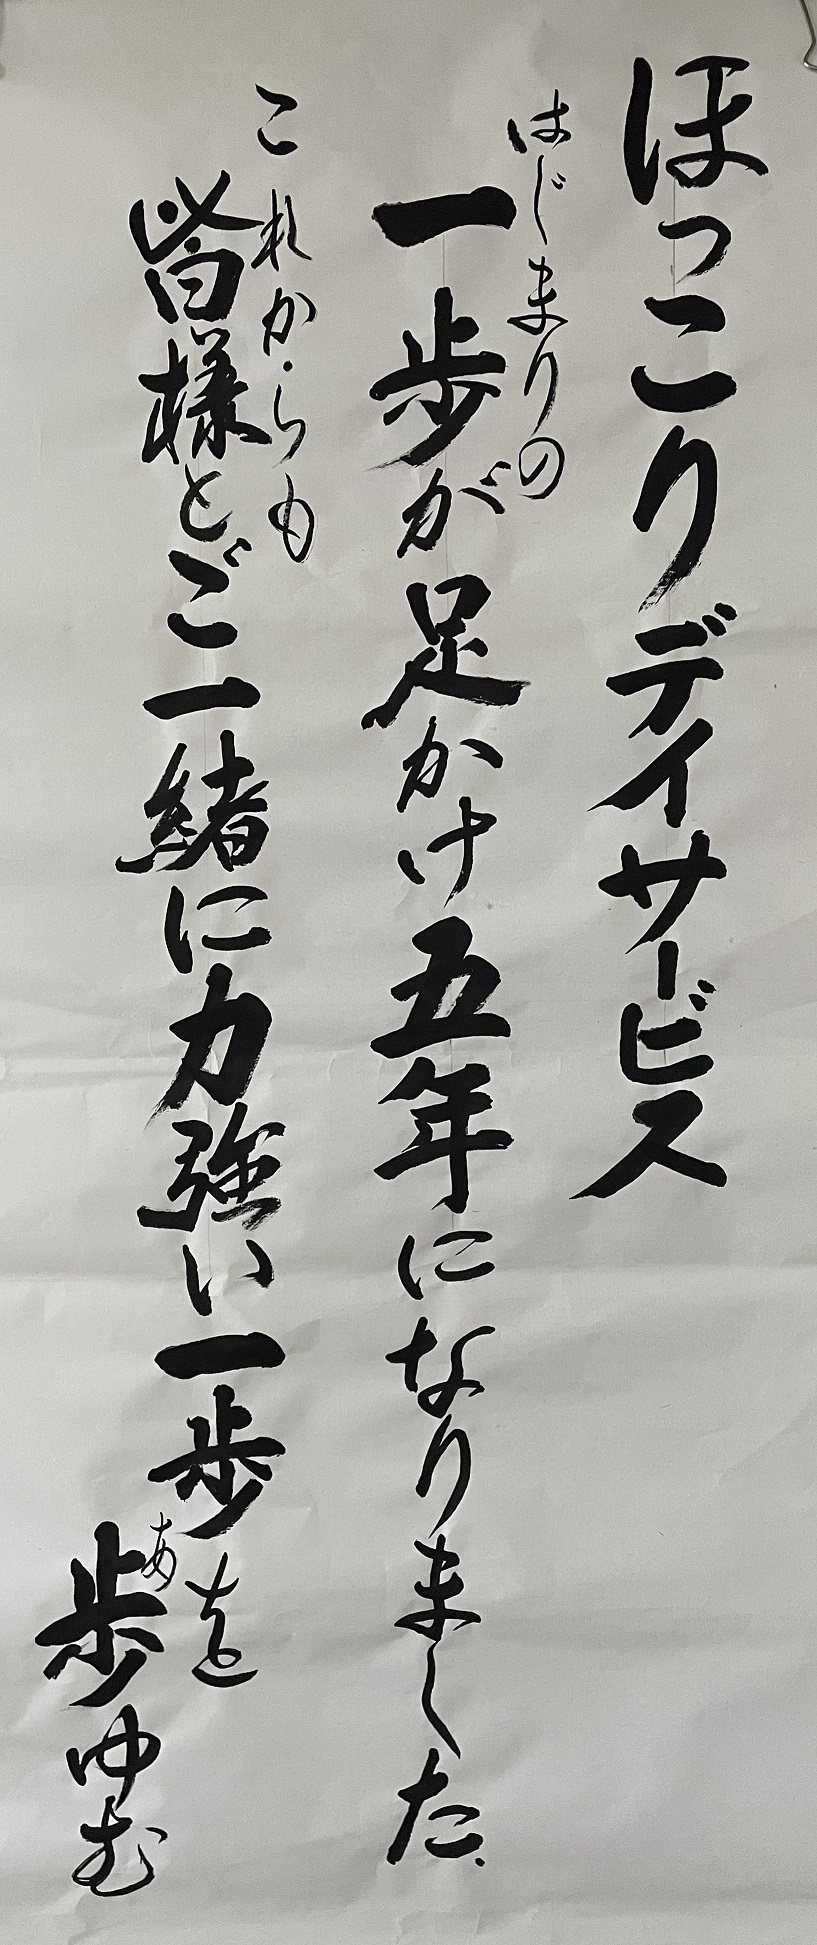 ほっこりデイサービス
はじまりの
一歩が足かけ五年になりました.
これからも
皆様とご一緒に力強い一歩を
あ
歩ゆむ